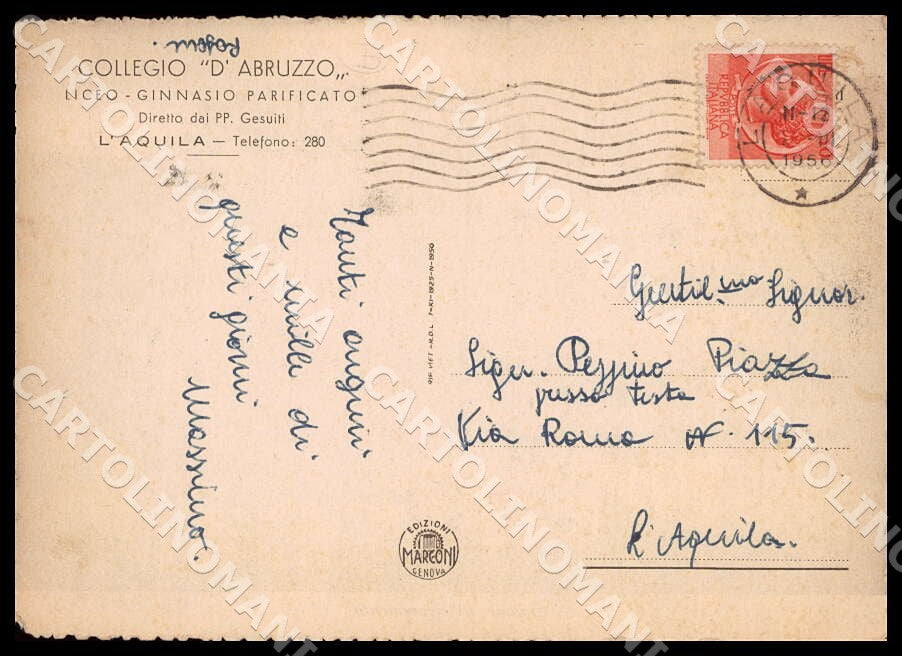 COLLEGIO "D'ABRUZZO„
LICEO - GINNASIO PARIFICATO
Diretto dai PP. Gesuiti
L'AQUILA — Telefono: 280
REPUBBLICA
ITALIANA
1956
Tanti auguri
e mille di
questi giorni
Massimo.
RIP. VIET. - N.D.L. 1-XI-1925-N-1950
Gentil.mo Signor.
Sign. Peppino Piazza
presso Testa
Via Roma N. 115.
L'Aquila.
EDIZIONI
MARCONI
GENOVA
CARTOLINOMANIA